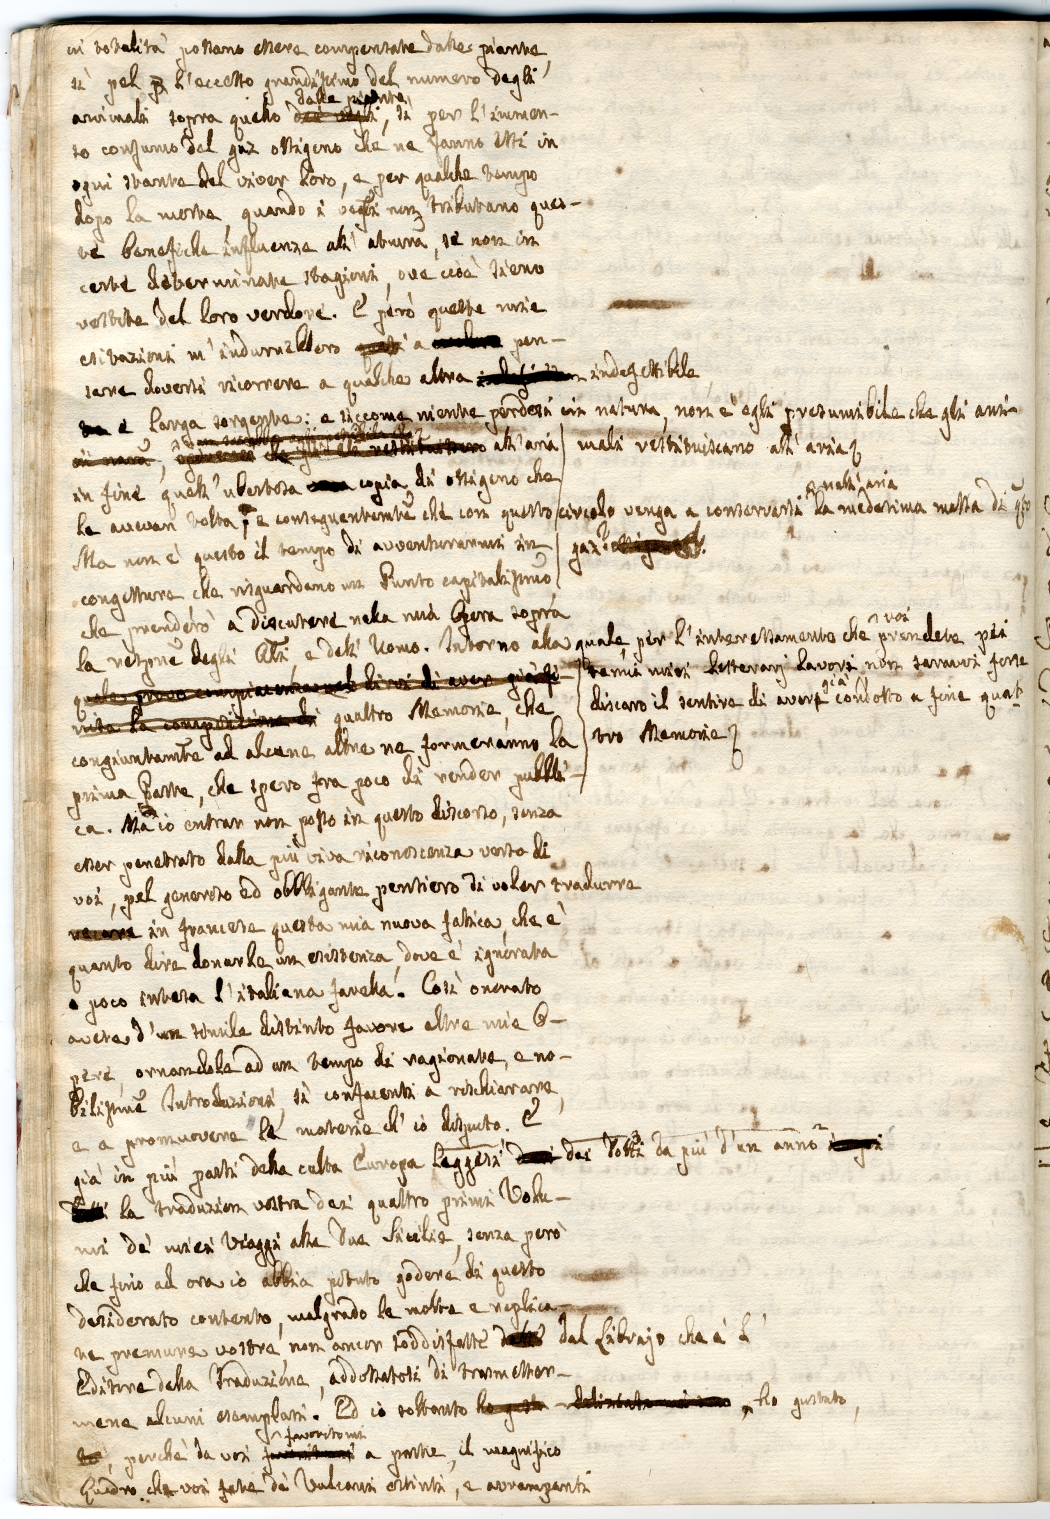 in totalità possano essere compensate dalle piante,
sì pel l'eccesso grandissimo del numero degli
dalle piante,
animali sopra quello dei vegli, sì per l'immen-
so consumo del gaz ossigeno che ne fanno essi in
ogni istante del viver loro, e per qualche tempo
dopo la morte, quando i vegli non tributano ques-
te benefiche influenze all'aturra, se non in
certe determinate stagioni, ove cioè sieno
vestite del loro verdore. E però queste mie
esitazioni m'indurrebbero quasi a pen-
sare doversi ricorrere a qualche altra indefettibile
e larga sorgente: e siccome niente perdesi in natura, non è egli presumibile che gli ani-
che gli restituissero all'aria mali restituiscano all'aria
in fine quell'ubertosa copia di ossigeno che
nell'aria
le avevan tolta, e conseguentemte che con questo circolo venga a conservarsi la medesima massa di qsto
Ma non è questo il tempo di avventurarmi in gaz?
congetture che risguardano un Punto capitalissimo
che prenderò a discutere nella mia Opera sopra
voi
la respne degli Ali, e dell'Uomo. Intorno alla quale, per l'interessamento che prendete pei
quale provo compiacenza nel dirvi di aver già fi- temi miei letterarj lavori non saravvi forse
già
nita la composizione di quattro Memorie, che discaro il sentire di aver condotto a fine quat-
congiuntamte ad alcune altre ne formeranno la tro Memorie
prima Parte, che spero fra poco di render pubbli-
ca. Ma io entrar non posso in questo discorso, senza
esser penetrato dalla più viva riconoscenza verso di
voi, pel generoso ed obbligante pensiero di voler tradurre
recare in francese questa mia nuova fatica, che è
quanto dire donarle un esistenza, dove è ignorata
o poco intesa l'italiana favella. Così onorato
avete d'un simile distinto favore altre mie O-
pere, ornandole ad un tempo di ragionate, e no-
bilissime Introduzioni, sì confacenti a rischiarare,
e a promuovere le materie ch'io disputo. E
già in più parti della culta Europa leggesi dai Dotti da più d'un anno
la traduzion vostra dei quattro primi Volu-
mi de' miei Viaggi alle Due Sicilie, senza però
che fino ad ora io abbia potuto godere di questo
desiderato contento, malgrado le molte e replica-
te premure vostre, non ancor soddisfatte dal Librajo che è l'
Editore della Traduzione, addossatosi di trasmetter-
mene alcuni esemplari. Ed io soltanto ho gustato,
favoritomi
perchè da voi a parte, il magnifico
Quadro che voi fate de' Vulcani estinti, e avvampanti